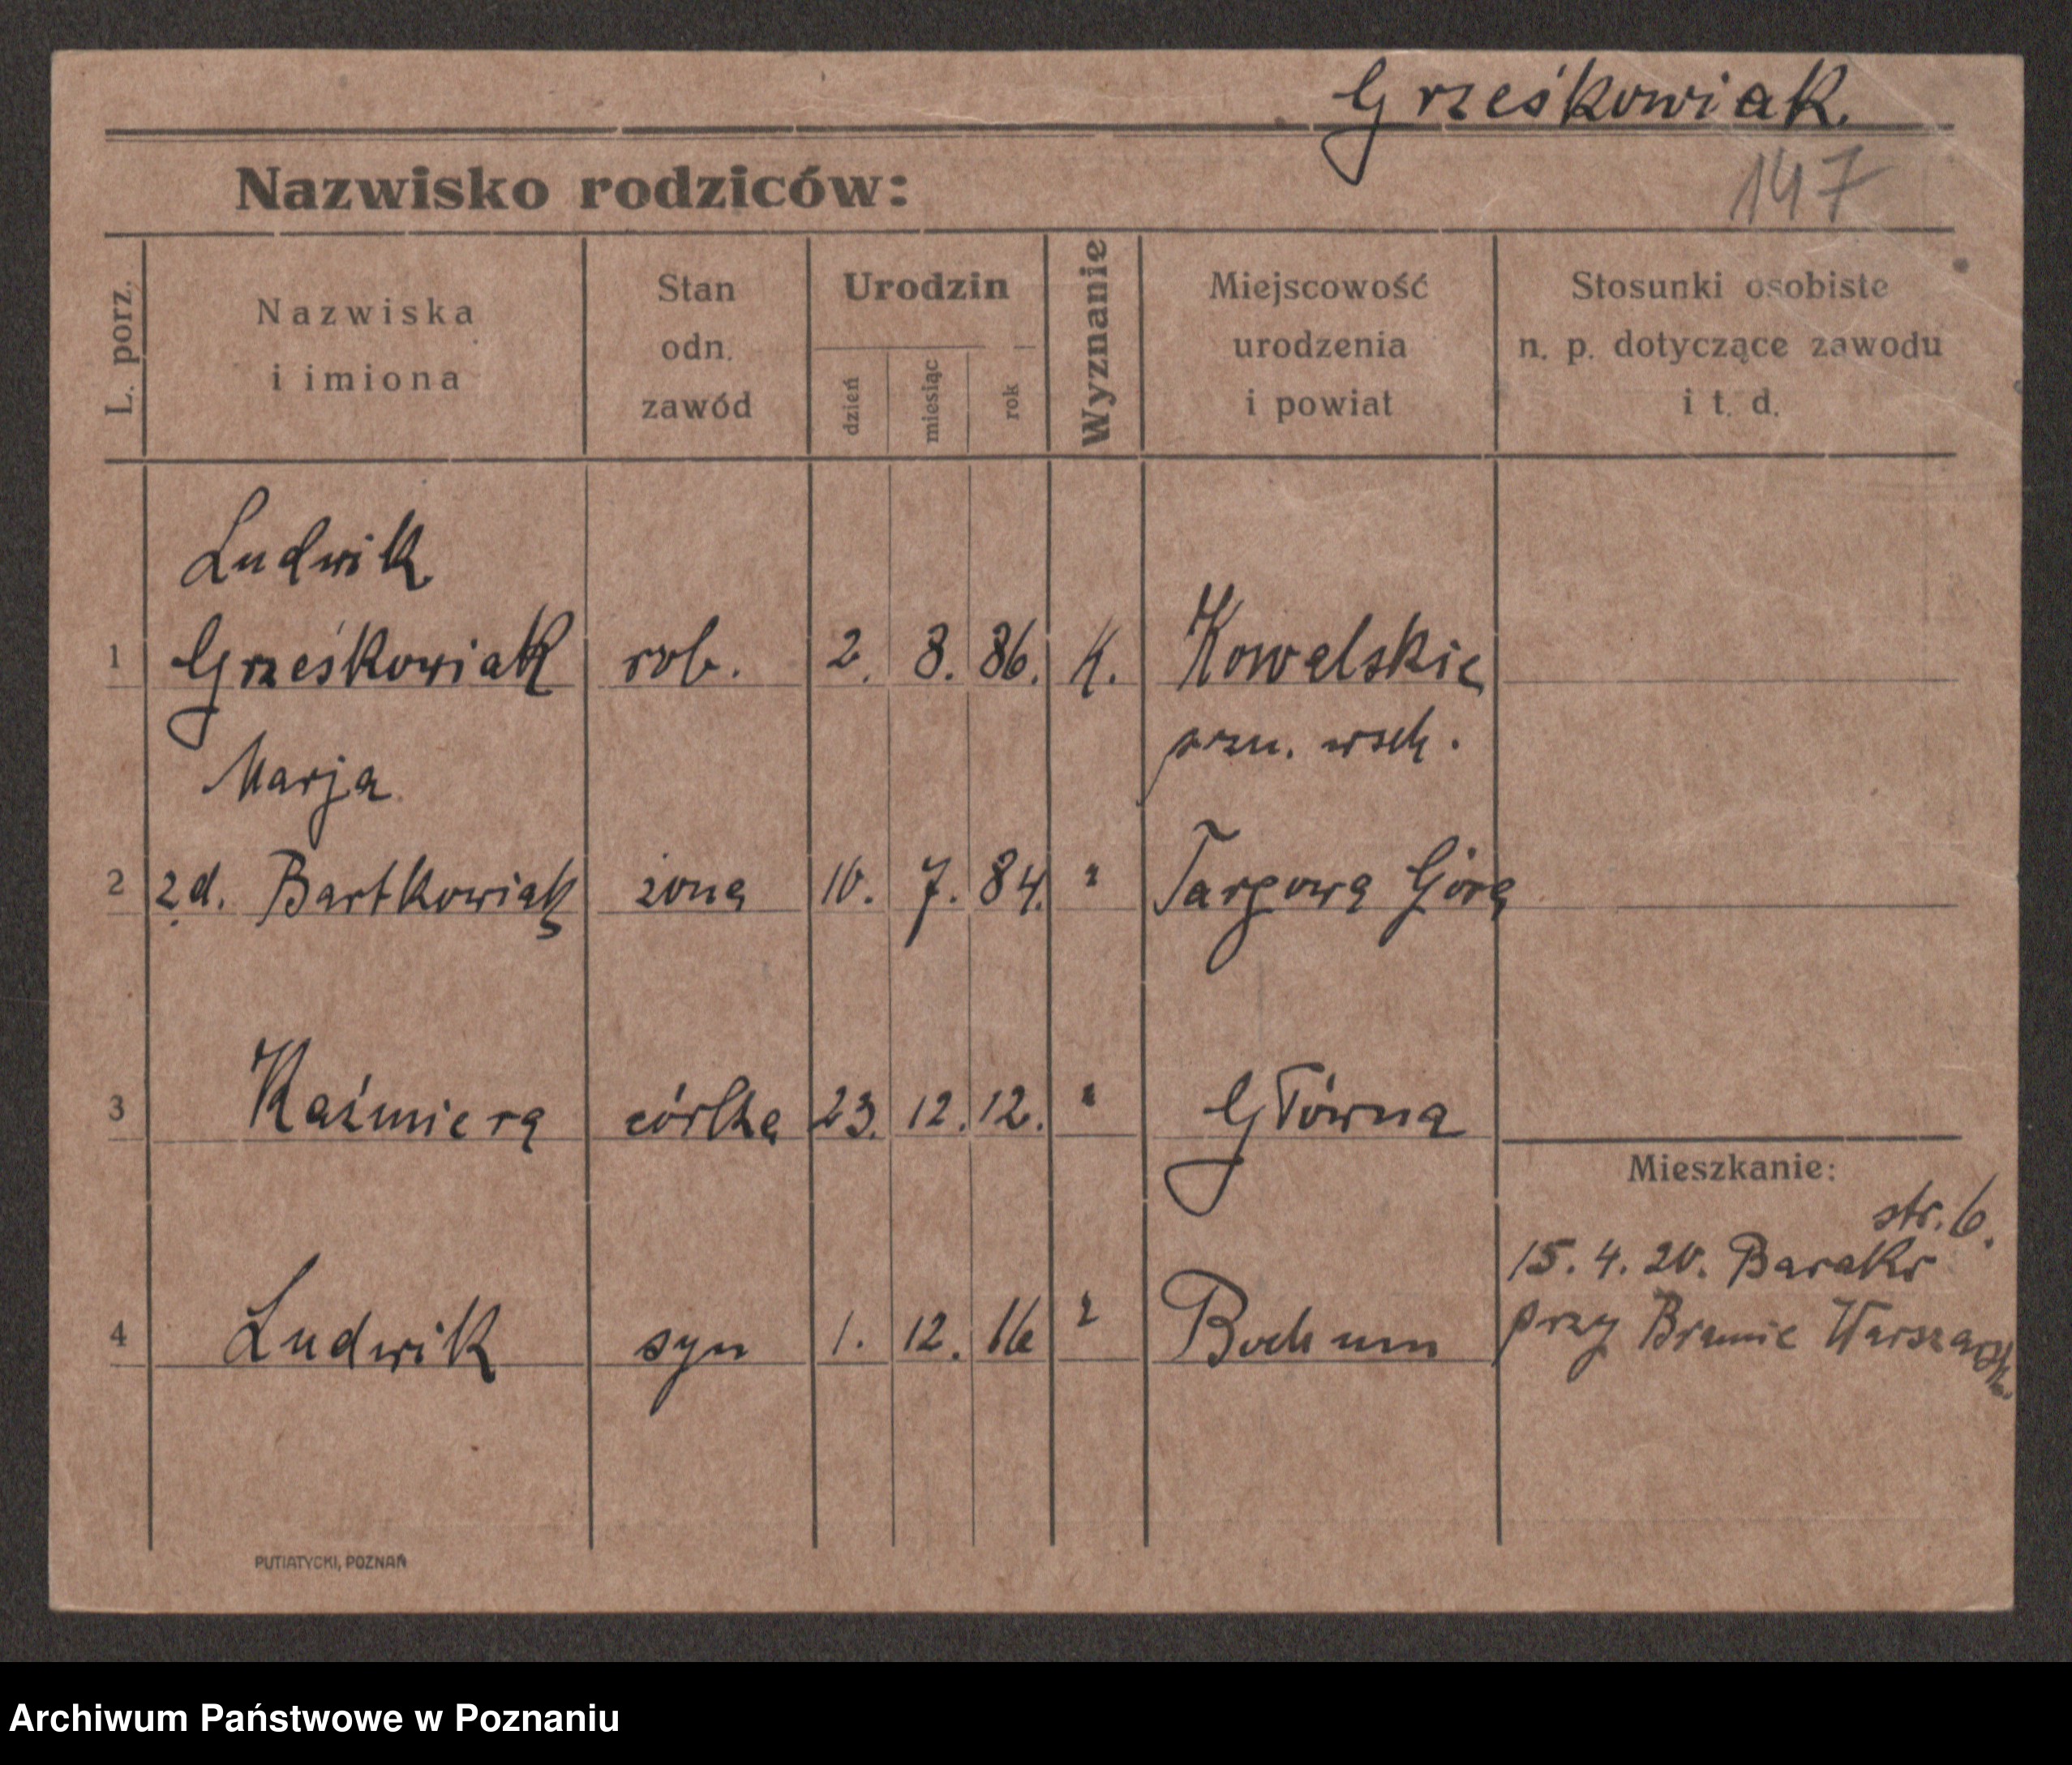 Grześkowiak.
147
Nazwisko rodziców:
L. porz.
Nazwiska
i imiona
Stan
odn.
zawód
Urodzin
dzień
miesiąc
rok
Wyznanie
Miejscowość
urodzenia
i powiat
Stosunki osobiste
n. p. dotyczące zawodu
i t. d.
Ludwik
1 Grześkowiak rob. 2. 8. 86. K. Kowalskie
wsch.
Marja
2 z d. Bartkowiak żona 10. 7. 84. " Targowa Góra
3 Kaźmiera córka 23. 12. 12. " Główna
Mieszkanie:
str. 6.
15. 4. 20. Baraki
4 Ludwik syn 1. 12. 16 " Bochum
przy Bramie Warszawsk.
PUTIATYCKI, POZNAŃ
Archiwum Państwowe w Poznaniu